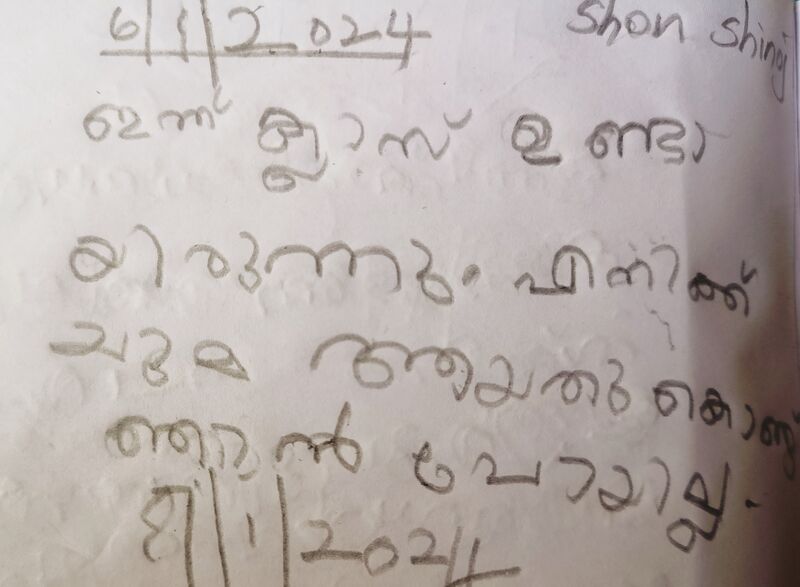 6/1/2024 Shon Shinoj
ഇന്ന് ക്ലാസ് ഉണ്ടാ
യിരുന്നു. എനിക്ക്
ചുമ ആയതുകൊണ്ട്
ഞാൻ പോയില്ല.
8/1/2024